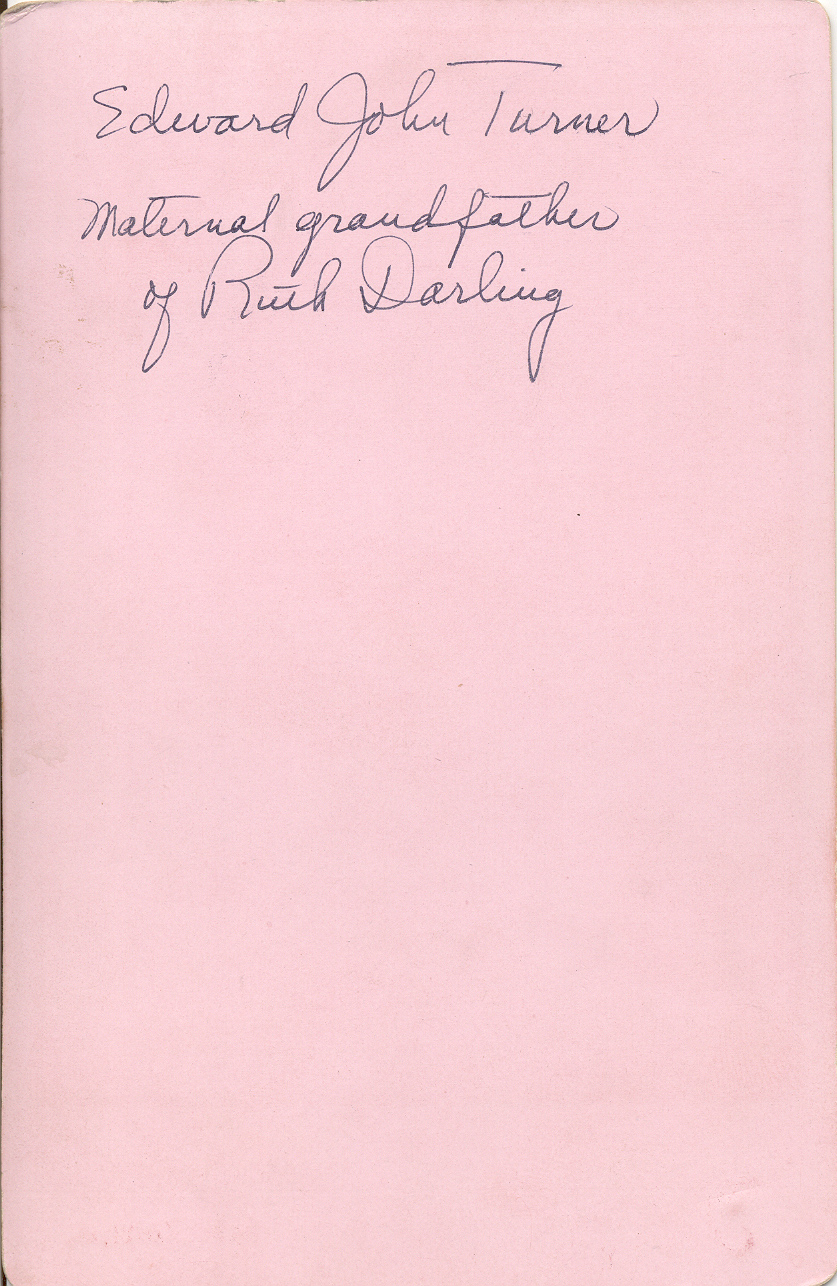 Edward John Turner
Maternal grandfather
of Ruth Darling